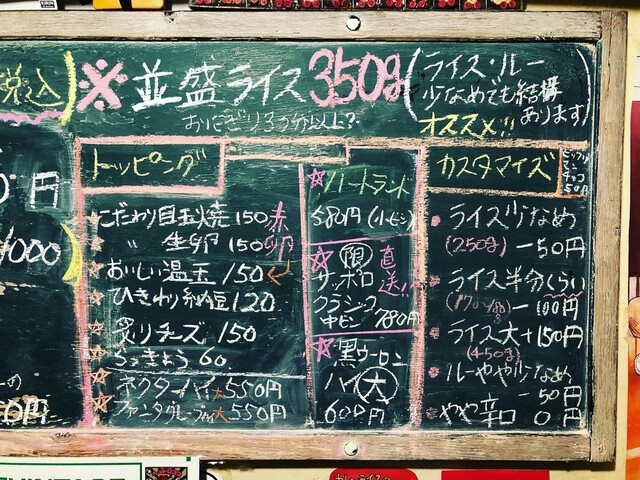 税込
※並盛ライス350g
おにぎり3コ分以上?
ライス・ルー
少なめでも結構
あります
オススメ!!
0円
1000
0円
トッピング
こだわり目玉焼150
〃 生卵150
赤卵
おいしい温玉150
ひきわり納豆120
炙りチーズ150
らっきょう60
ネクターハイ大550円
ファンタグレープハイ大550円
ハートランド
580円(小ビン)
限
直送!!
サッポロ
クラシック
中ビン780円
黒ウーロン
ハイ大
600円
カスタマイズ
50円
ライス少なめ
(250g) -50円
ライス半分くらい
(170g) -100円
ライス大+150円
(450g)
ルーやや少なめ
-50円
やや辛口 0円